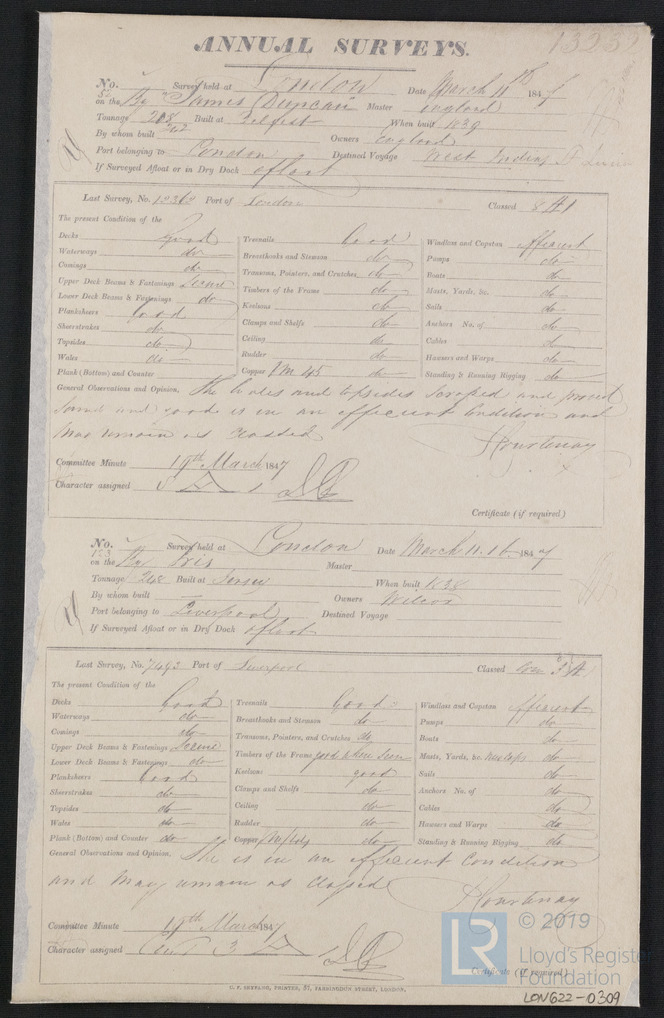 ANNUAL SURVEYS.
No. 52 Survey held at London Date March 11th 1847
on the Bg James Duncan Master England
Tonnage 208 242 Built at Belfast When built 1839
By whom built Owners England
Port belonging to London Destined Voyage West Indies
If Surveyed Afloat or in Dry Dock afloat
Last Survey, No. 12362 Port of London Classed 8 A 1
The present Condition of the
Decks Good
Waterways do
Comings do
Upper Deck Beams & Fastenings Secure
Lower Deck Beams & Fastenings do
Planksheers Good
Sheerstrakes do
Topsides do
Wales do
Plank (Bottom) and Counter
Treenails Good
Breasthooks and Stemson do
Transoms, Pointers, and Crutches do
Timbers of the Frame do
Keelsons do
Clamps and Shelfs do
Ceiling do
Rudder do
Copper FM 45 do
Windlass and Capstan efficient
Pumps do
Boats do
Masts, Yards, &c. do
Sails do
Anchors No. of do
Cables do
Hawsers and Warps do
Standing & Running Rigging do
General Observations and Opinion, The Wales and topsides scraped and proved
sound and good is in an efficient Condition and
may remain as classed
Courtenay
Committee Minute 19th March 1847
Character assigned 8 A 1
Certificate (if required)
No. 153 Survey held at London Date March 11. 16. 1847
on the Bg Iris Master
Tonnage 248 Built at Jersey When built 1838
By whom built Owners Wilcox
Port belonging to Liverpool Destined Voyage
If Surveyed Afloat or in Dry Dock afloat
Last Survey, No. 7493 Port of Liverpool Classed
The present Condition of the
Decks Good
Waterways do
Comings do
Upper Deck Beams & Fastenings Secure
Lower Deck Beams & Fastenings do
Planksheers Good
Sheerstrakes do
Topsides do
Wales do
Plank (Bottom) and Counter do
Treenails Good
Breasthooks and Stemson do
Transoms, Pointers, and Crutches do
Timbers of the Frame good
Keelsons good
Clamps and Shelfs do
Ceiling do
Rudder do
Copper do
Windlass and Capstan efficient
Pumps do
Boats do
Masts, Yards, &c. do
Sails do
Anchors No. of do
Cables do
Hawsers and Warps do
Standing & Running Rigging do
General Observations and Opinion, She is in an efficient Condition
and may remain as classed
Courtenay
Committee Minute 19th March 1847
Character assigned
Certificate (if required)
C. F. SEYFANG, PRINTER, 57, FARRINGDON STREET, LONDON.
LR © 2019
Lloyd's Register
Foundation
LON622-0309